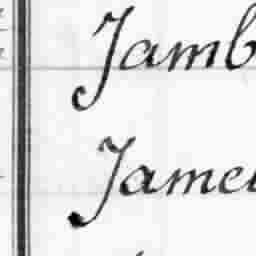 Jamb
Jame